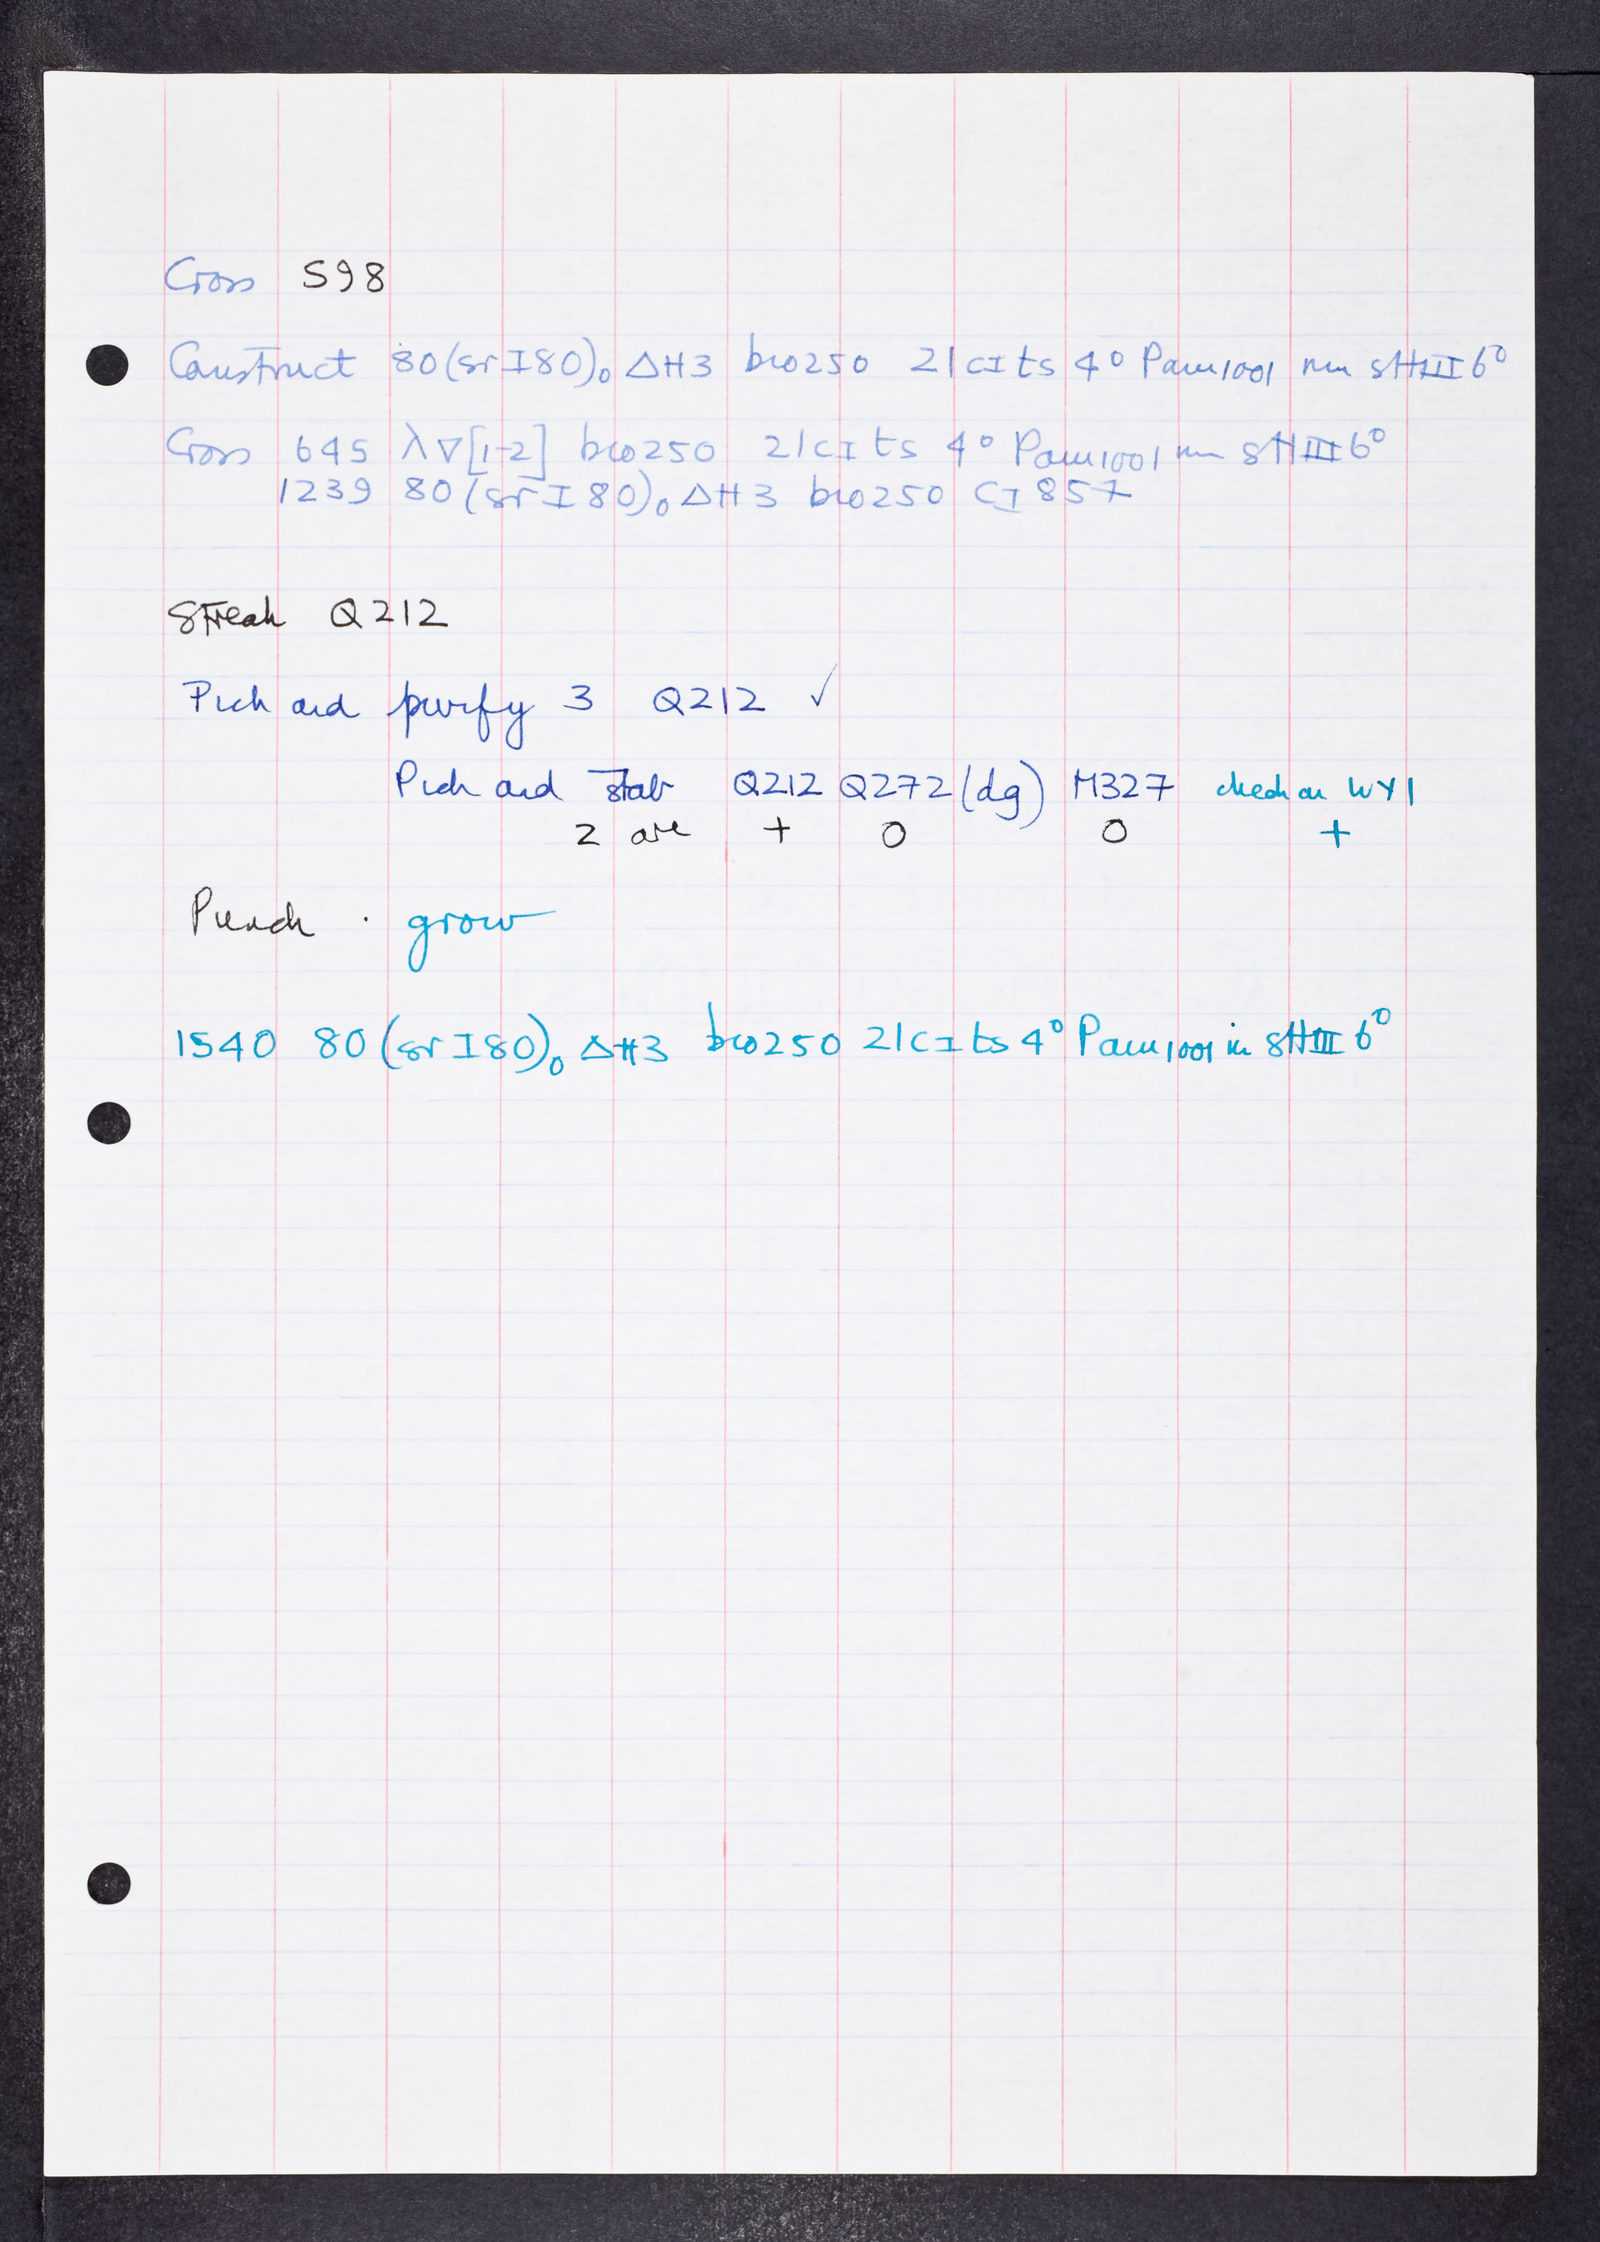 Cross 598
Construct 80(srI80)₀ ΔH3 bio250 21cIts 4° Pam1001 nin sHIII6°
Cross 645 λ∇[1-2] bio250 21cIts 4° Pam1001 nin sHIII6°
1239 80(srI80)₀ ΔH3 bio250 cI857
Streak Q212
Pick and purify 3 Q212 ✓
Pick and stab Q212 Q272(dg) M327 check on WY1
2 are + 0 0 +
Punch · grow
1540 80(srI80)₀ ΔH3 bio250 21cIts 4° Pam1001 in sHIII6°